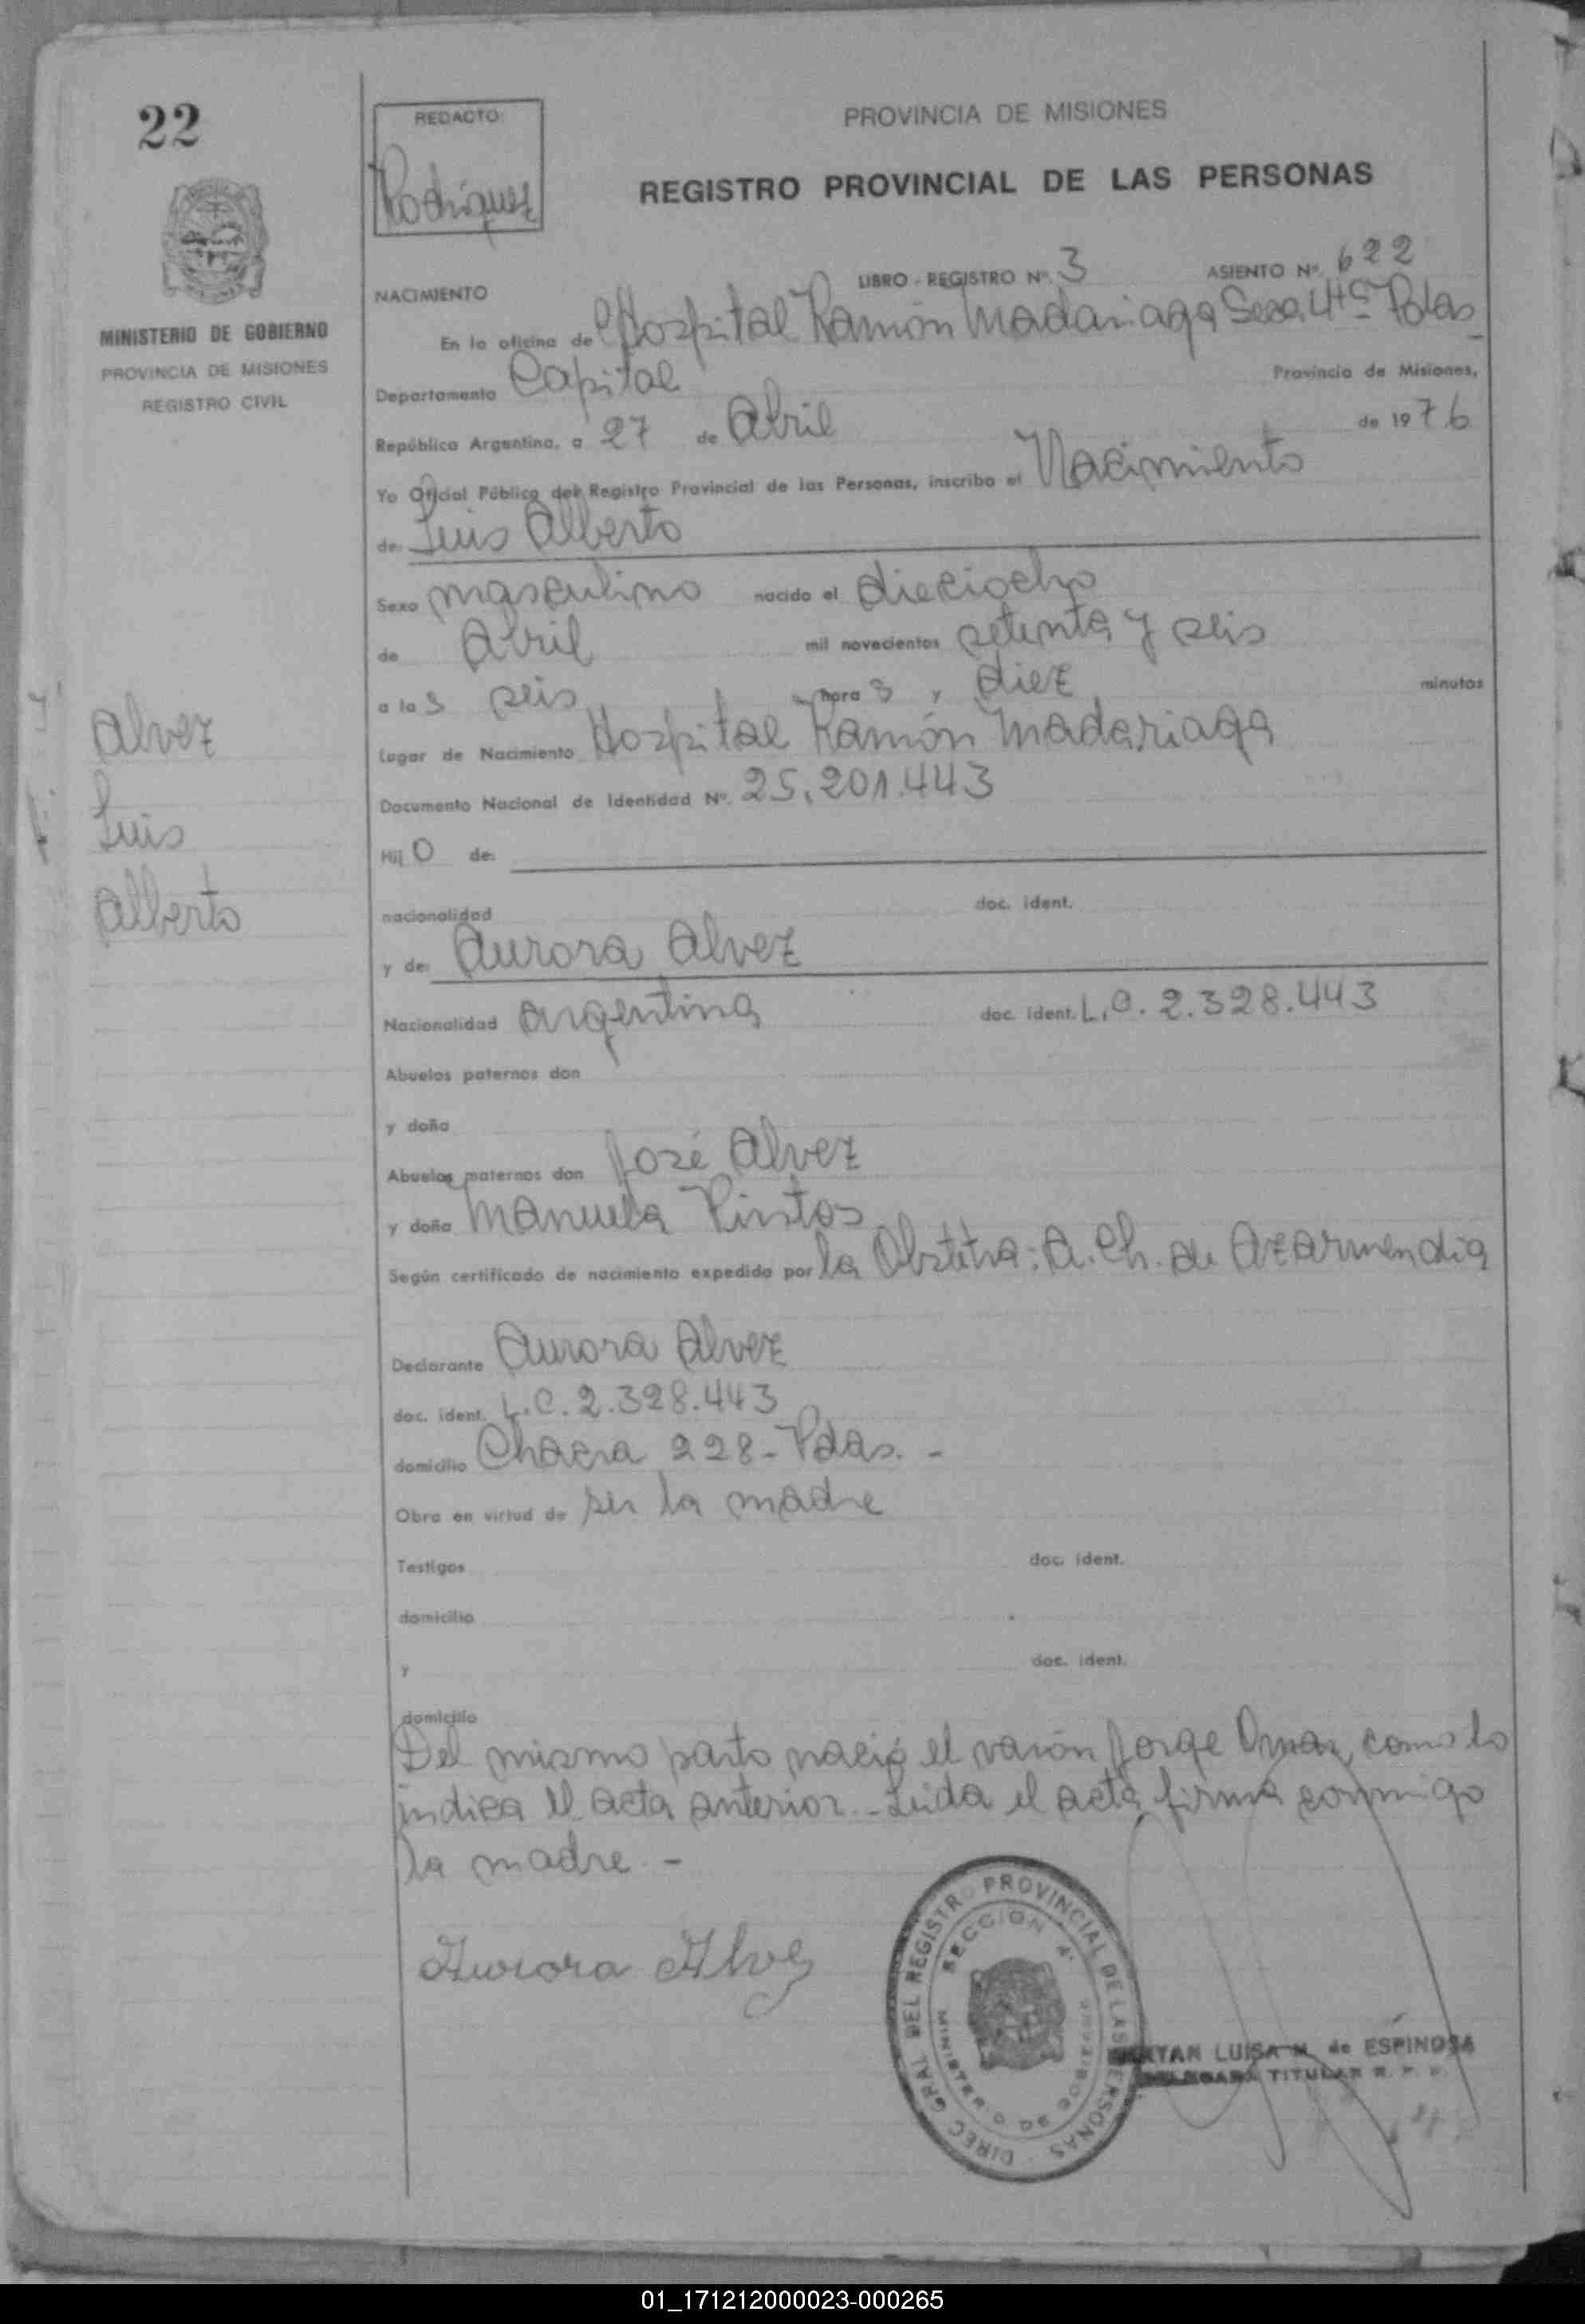 22
REDACTO:
Rodriguez
PROVINCIA DE MISIONES
REGISTRO PROVINCIAL DE LAS PERSONAS
MINISTERIO DE GOBIERNO
PROVINCIA DE MISIONES
REGISTRO CIVIL
Alvez
Luis
Alberto
LIBRO - REGISTRO Nº. 3 ASIENTO Nº. 622
NACIMIENTO
En la oficina de Hospital Ramón Madariaga Secc. 4ta Pdas
Departamento Capital Provincia de Misiones,
República Argentina, a 27 de Abril de 1976
Yo Oficial Público del Registro Provincial de las Personas, inscribo el Nacimiento
de: Luis Alberto
Sexo masculino nacido el dieciocho
de Abril mil novecientos setenta y seis
a las seis horas y diez minutos
Lugar de Nacimiento Hospital Ramón Madariaga
Documento Nacional de Identidad Nº. 25.201.443
Hijo de:
nacionalidad doc. ident.
y de: Aurora Alvez
Nacionalidad argentina doc. ident. L.C. 2.328.443
Abuelos paternos don
y doña
Abuelos maternos don José Alvez
y doña Manuela Pintos
Según certificado de nacimiento expedido por la Obstetra: A. Ch. de Azarmendia
Declarante Aurora Alvez
doc. ident. L.C. 2.328.443
domicilio Chacra 228 - Pdas. -
Obra en virtud de ser la madre
Testigos doc. ident.
domicilio
y doc. ident.
domicilio
Del mismo parto nació el varón Jorge Omar, como lo
indica el acta anterior. - Leida el acta firma conmigo
la madre. -
Aurora Alvez
DIREC. GRAL DEL REGISTRO PROVINCIAL DE LAS PERSONAS
SECCION 4ª
MINISTERIO DE GOBIERNO
LUISA M. de ESPINOSA
DELEGADA TITULAR R. P. P.
01_171212000023-000265